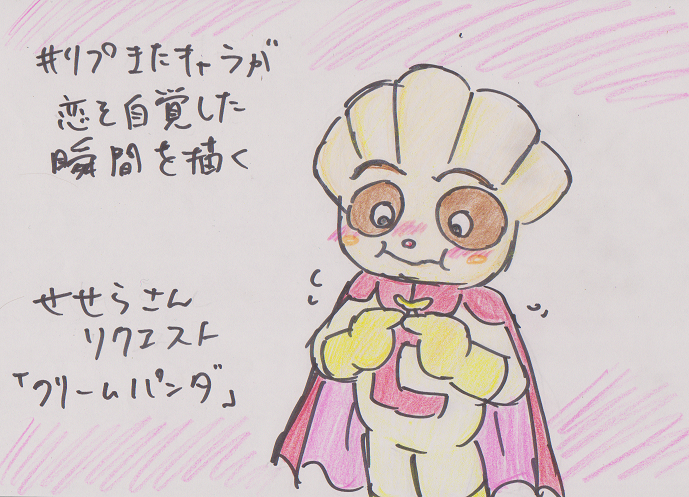 #リプきたキャラが
恋を自覚した
瞬間を描く
せせらさん
リクエスト
「クリームパンダ」
C